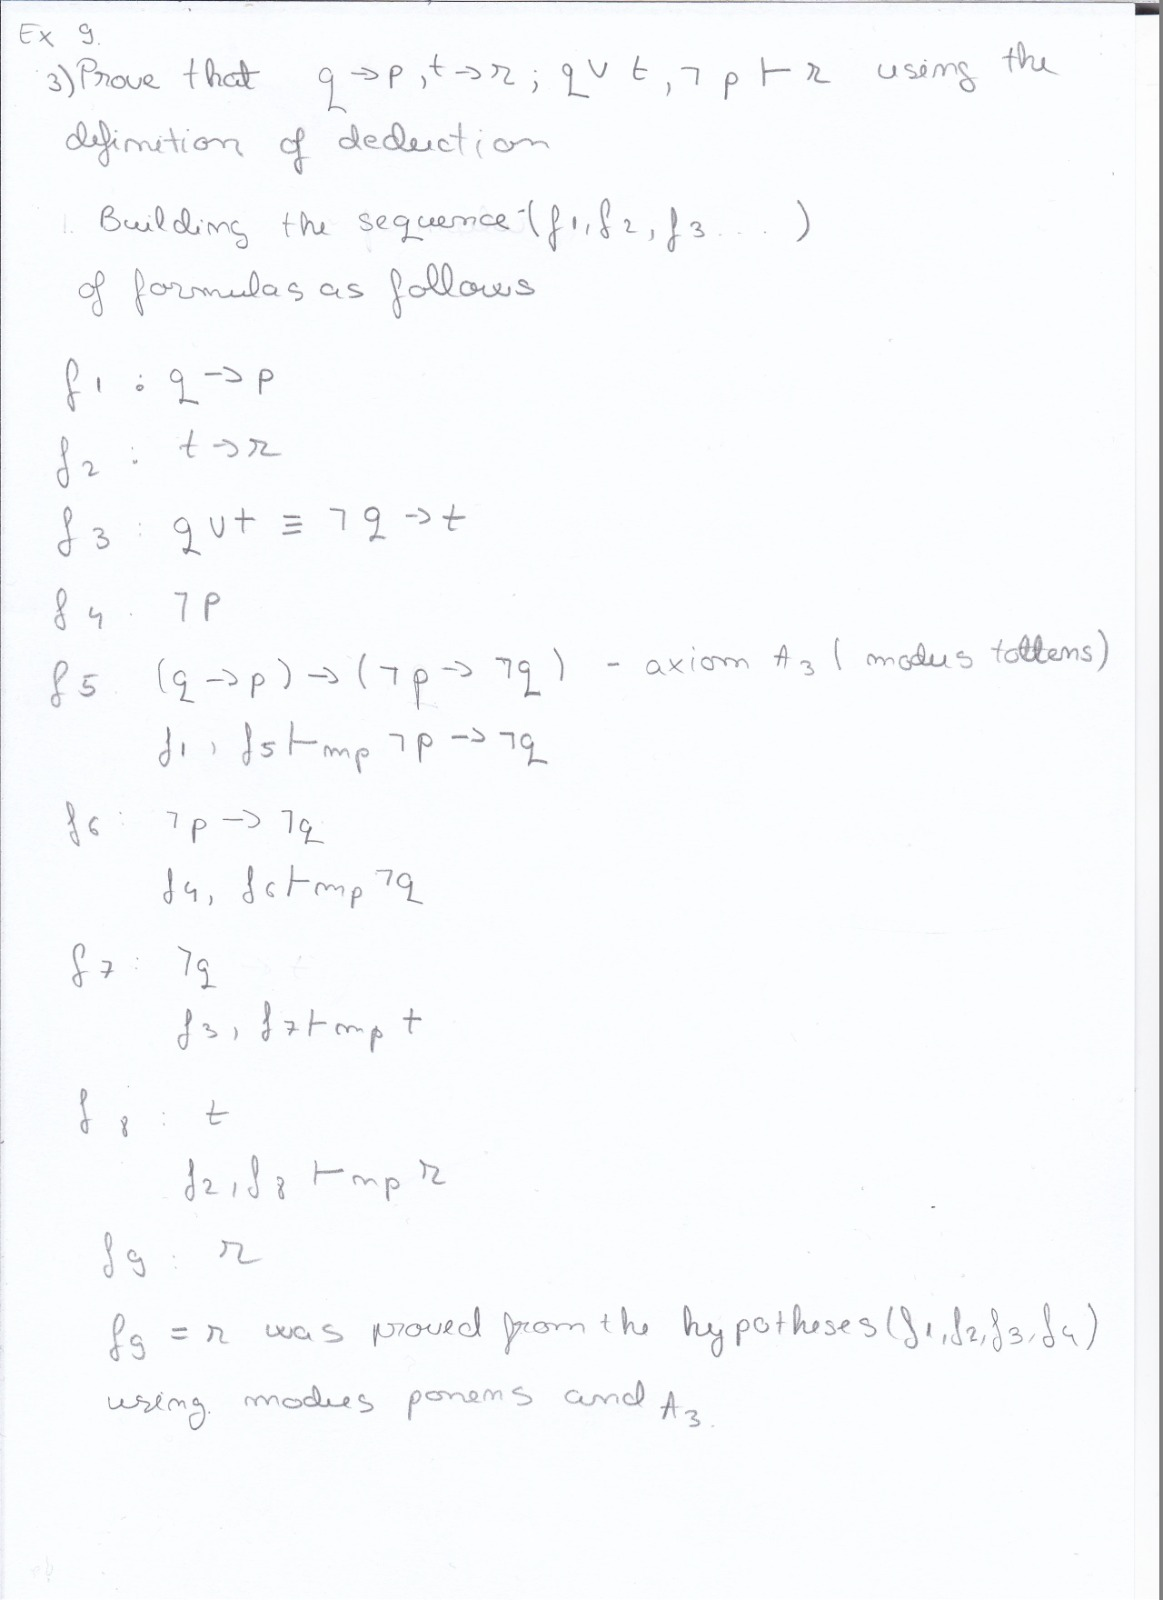 Ex 9.
3) Prove that q → p, t → r; q ∨ t, ¬p ⊢ r using the
definition of deduction
1. Building the sequence (f1, f2, f3 ... )
of formulas as follows
f1 : q → p
f2 : t → r
f3 : q ∨ t ≡ ¬q → t
f4 . ¬p
f5 (q → p) → (¬p → ¬q) - axiom A3 ( modus tollens)
f1, f5 ⊢mp ¬p → ¬q
f6 : ¬p → ¬q
f4, f6 ⊢mp ¬q
f7 : ¬q
f3, f7 ⊢mp t
f8 : t
f2, f8 ⊢mp r
f9 : r
f9 = r was proved from the hypotheses (f1, f2, f3, f4)
using modus ponens and A3.